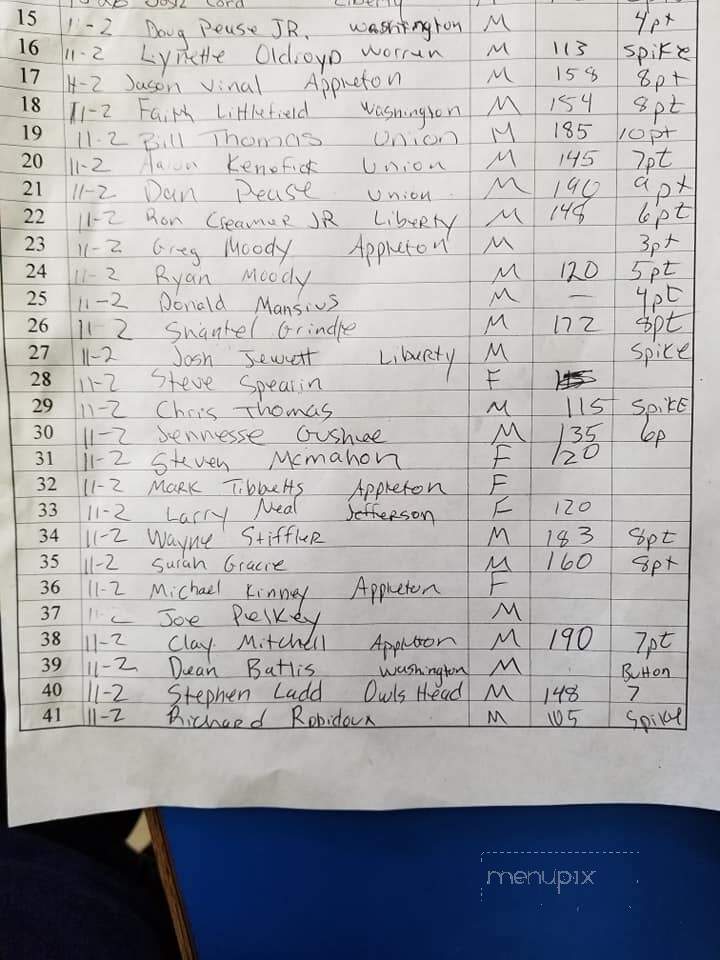 Liberty
15 11-2 Doug Pease JR. Washington M 4pt
16 11-2 Lynette Oldroyd Warren M 113 Spike
17 11-2 Jason Vinal Appleton M 158 8pt
18 11-2 Faith Littlefield Washington M 154 8pt
19 11-2 Bill Thomas Union M 185 10pt
20 11-2 Aaron Kenefick Union M 145 7pt
21 11-2 Dan Pease Union M 190 9pt
22 11-2 Ron Creamer JR Liberty M 148 6pt
23 11-2 Greg Moody Appleton M 3pt
24 11-2 Ryan Moody M 120 5pt
25 11-2 Donald Mansius M — 4pt
26 11-2 Shantel Grindle M 172 8pt
27 11-2 Josh Jewett Liberty M Spike
28 11-2 Steve Spearin F
29 11-2 Chris Thomas M 115 SPIKE
30 11-2 Jennesse Gushee M 135 6p
31 11-2 Steven McMahon F 120
32 11-2 MARK Tibbetts Appleton F
33 11-2 Larry Neal Jefferson F 120
34 11-2 Wayne Stiffler M 183 8pt
35 11-2 Sarah Gracie M 160 8pt
36 11-2 Michael Kinney Appleton F
37 11-2 Joe Pelkey M
38 11-2 Clay Mitchell Appleton M 190 7pt
39 11-2 Dean Batlis Washington M Button
40 11-2 Stephen Ladd Owls Head M 148 7
41 11-2 Richard Robidoux M 105 Spike
menupix